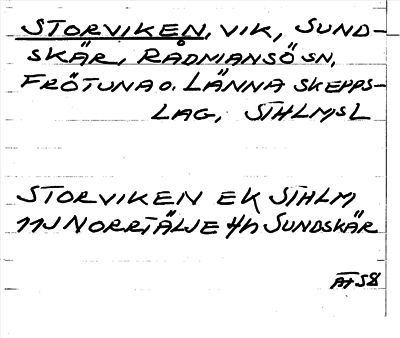 STORVIKEN, VIK, SUND-
SKÄR, RÅDMANSÖ SN,
FRÖTUNA O. LÄNNA SKEPPS-
LAG, STHLMSL
STORVIKEN EK STHLM
11J NORRTÄLJE 4h SUNDSKÄR